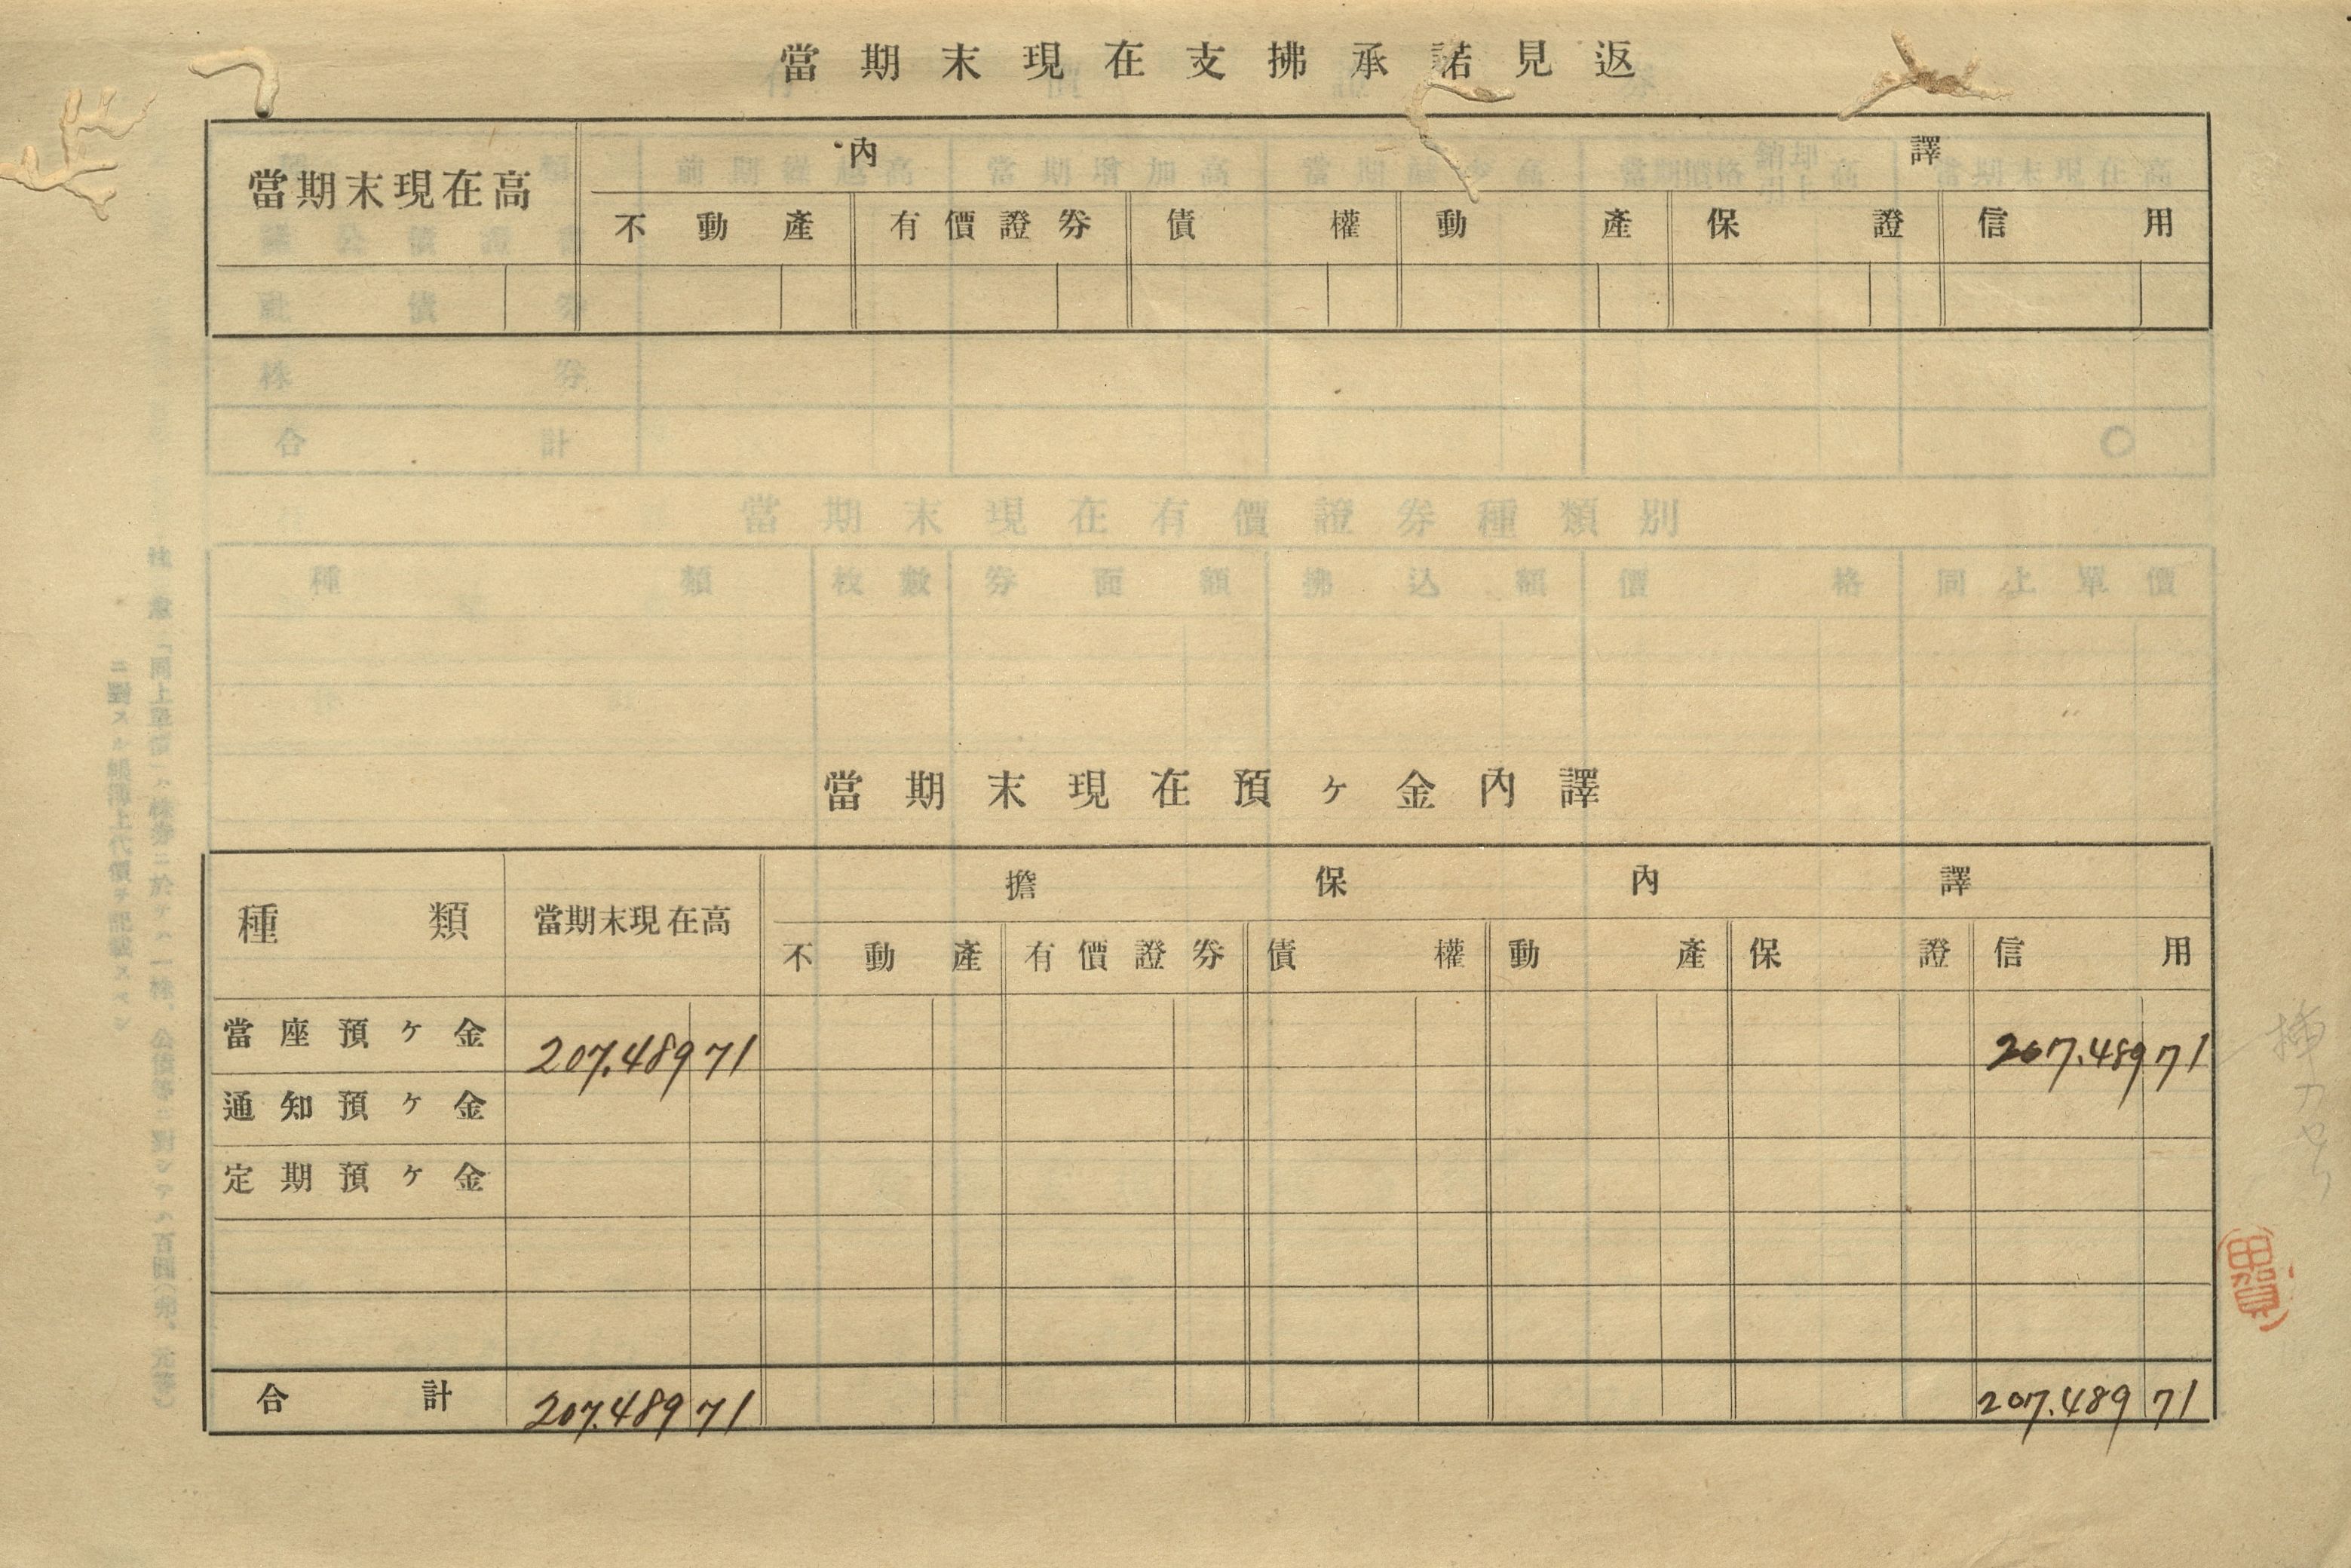 當期末現在支拂承諾見返
當期末現在高 內譯
不動產 有價證券 債權 動產 保證 信用
當期末現在預ヶ金內譯
種類 當期末現在高 擔保內譯
不動產 有價證券 債權 動產 保證 信用
當座預ヶ金 207.489 71 207.489 71
通知預ヶ金
定期預ヶ金
合計 207.489 71 207.489 71